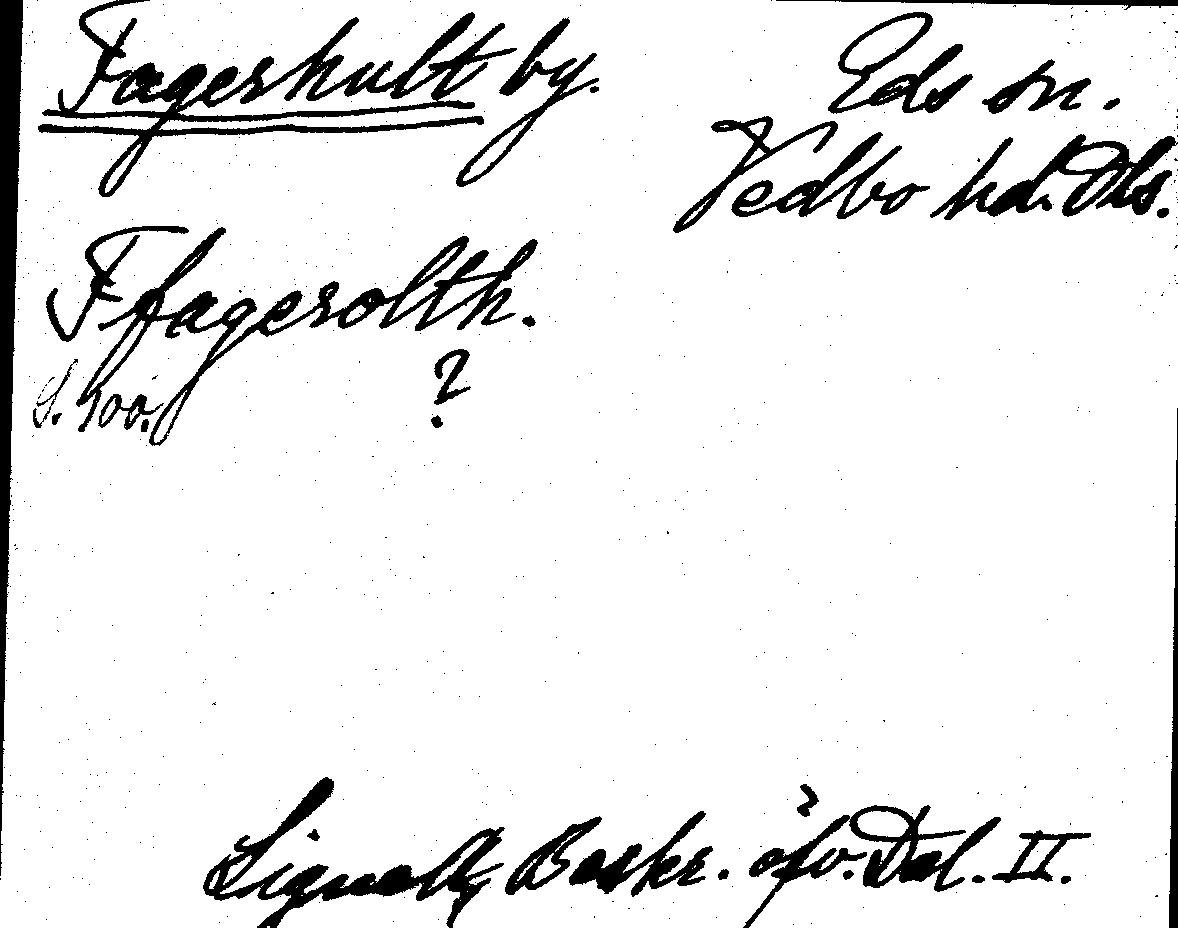 Fagershult by.
Eds sn.
Vedbo hd. Dls.
Ffagersolth.
S. 400.
?
Lignell, Beskr. öfv. Dal. II.